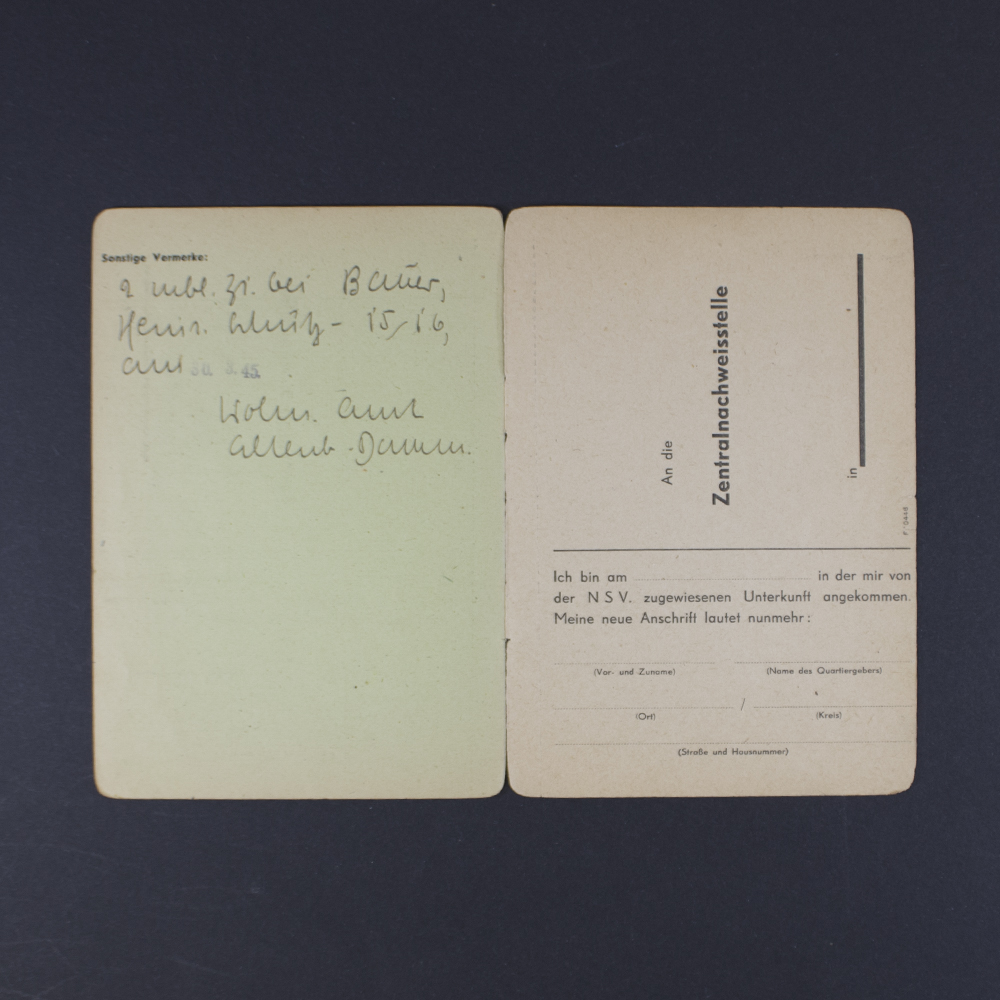 Sonstige Vermerke:
2 mbl. Zi. bei Bauer,
Heinr. Schütz- 15/16,
30. 3. 45.
Wohn. Amt
Altenb. Damm.
An die
Zentralnachweisstelle
in
Ich bin am in der mir von
der NSV. zugewiesenen Unterkunft angekommen.
Meine neue Anschrift lautet nunmehr:
(Vor- und Zuname) (Name des Quartiergebers)
/
(Ort) (Kreis)
(Straße und Hausnummer)